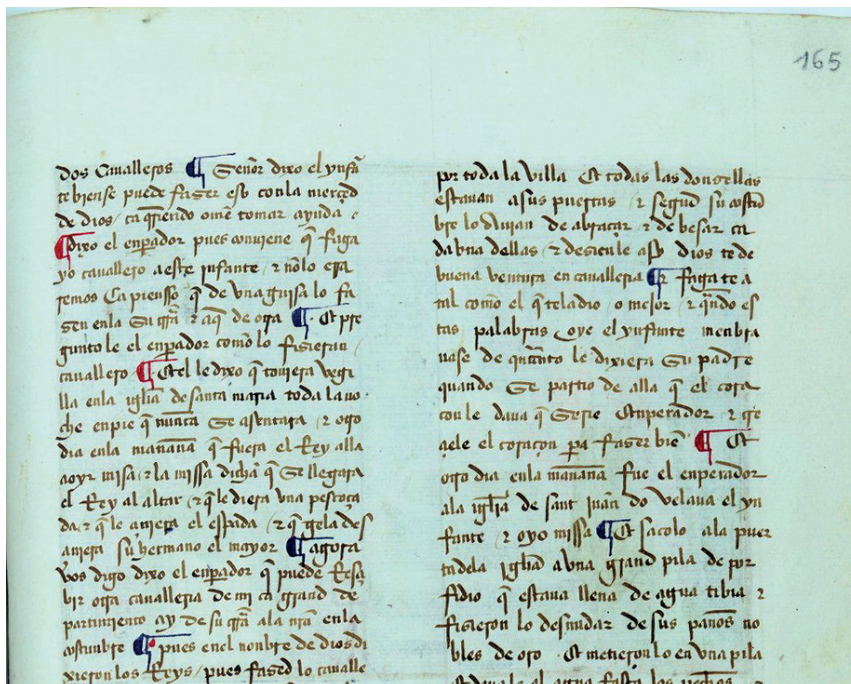 165
dos Cavalleros ¶ Señor dixo el ynfā
te biense puede fazer esto conla merçed
de dios / ca q̄riendo ome tomar ayuda
¶ dixo el enp̄ador pues conviene q̄ faga
yo cavallero a este infante / ⁊ nōlo era
remos Ca piensso q̄ de vna guisa lo fa
zen enla su tr̄ra ⁊ aq̄ de otra ¶ Et pre
gunto le el enp̄ador como lo fizieran
cavallero ¶ Et el le dixo q̄ toviera vegi
lla enla igl̄ia de santa maria toda la no
che enpie q̄ nunca se asentara / ⁊ otro
dia enla mañana q̄ fuera el Rey alla
a oyr misa / ⁊ la missa dicha q̄ se llegara
el Rey al altar / ⁊ q̄ le diera vna pescoça
da / ⁊ q̄ le çiniera el espada / ⁊ q̄ gela desc̄
çiniera su hermano el mayor ¶ agora
vos digo dixo el enp̄ador q̄ puede Resçe
bir otra cavalleria de mi ca grand de
partimiento ay de su tr̄ra ala n̄ra enla
costunbre ¶ pues enel nonbre de dios di
xieron los Reys / pues fazed lo cavalle
por toda la villa Et todas las donzellas
estavan a sus puertas / ⁊ segund su costū
bre lo avian de abraçar ⁊ de besar ca
da vna dellas / ⁊ desianle asy dios te de
buena ventura en cavalleria ¶ ⁊ fagate a
tal como el q̄ te la dio / o mejor / ⁊ q̄ndo es
tas palabras oye el ynfante menbra
vase de q̄nto le dixiera su padre
quando se partio de alla q̄ el cora
con le dava q̄ serie enperador / ⁊ cre
çiele el coraçon pa fazer bien ¶ Et
otro dia enla mañana fue el enperador
ala igl̄ia de sant juan do velava el yn
fante / ⁊ oyo missa ¶ Et sacolo ala puer
ta dela iglia a vna grand pila de por
fidio q̄ estava llena de agua tibia ⁊
fizieron lo desnudar de sus paños no
bles de oro Et metieron lo en vna pila